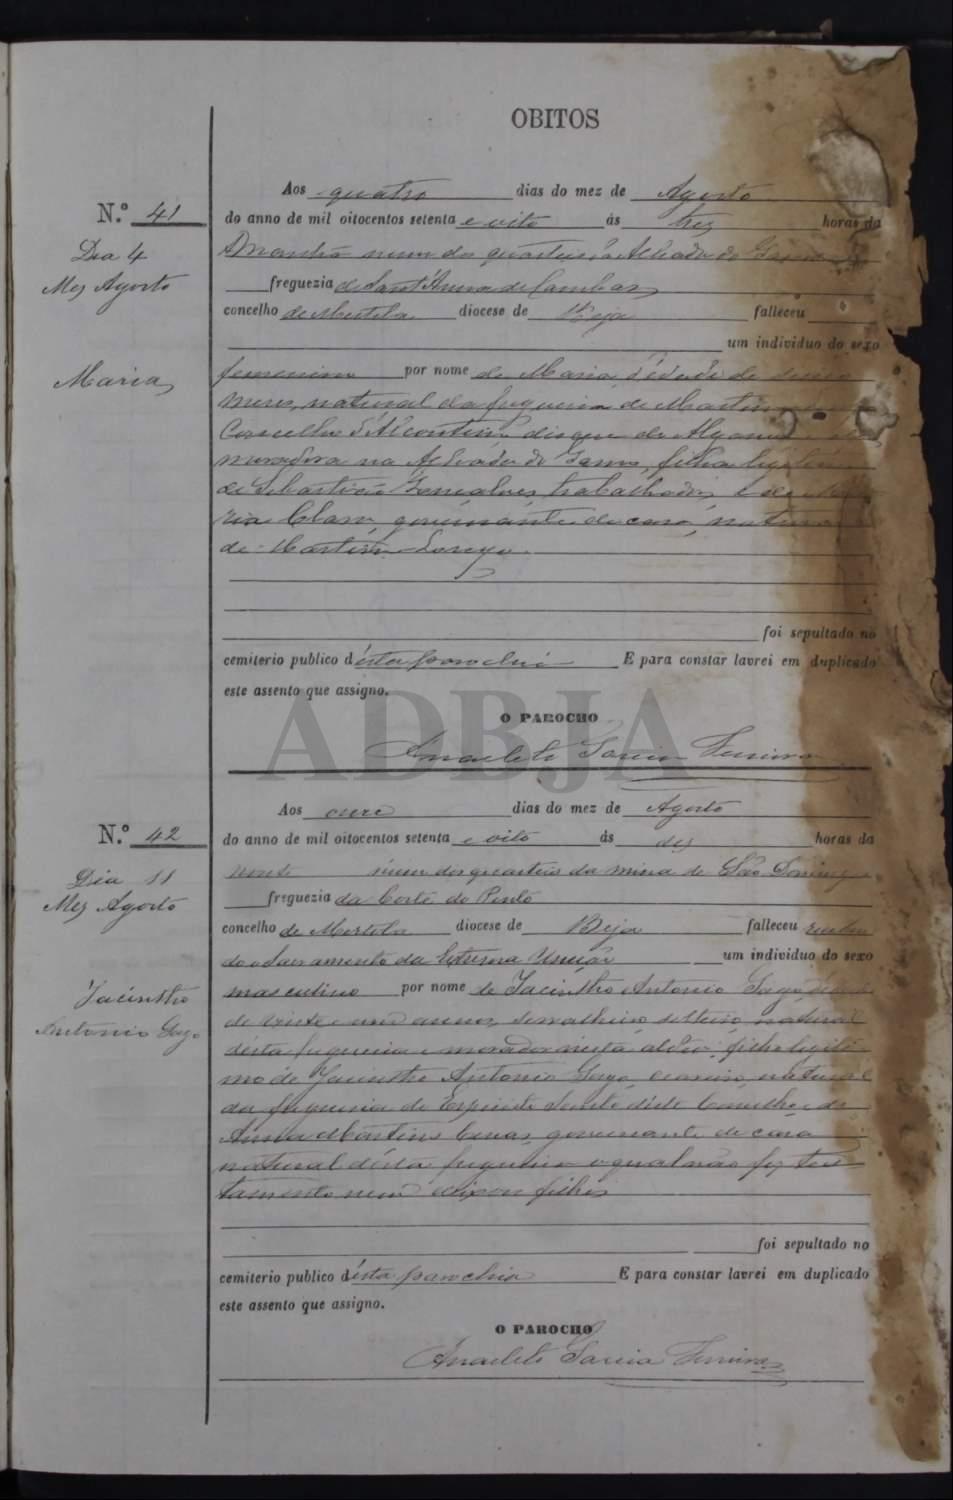 OBITOS
N.º 41
Dia 4
Mez Agosto
Maria
Aos quatro dias do mez de Agosto
do anno de mil oitocentos setenta e oito ás trez horas da
Manhã num dos quarteis da Achada do Gamo
freguezia de Sant'Anna de Cambas
concelho de Mertola diocese de Beja falleceu
um individuo do sexo
femenino por nome de Maria, d'edade de
mezes, natural da freguezia de Martim
Concelho d'Alcoutim, diocese do Algarve e
moradora na Achada do Gamo, filha legitima
de Sebastião Gonçalves, trabalhador, e de Ma
ria Clara, governante de casa, naturaes
de Martim Longo.
foi sepultado no
cemiterio publico d'ésta parochia E para constar lavrei em duplicado
este assento que assigno.
O PAROCHO
Anacleto Garcia Ferreira
ADBJA
N.º 42
Dia 11
Mez Agosto
Jacintho
Antonio Gago
Aos onze dias do mez de Agosto
do anno de mil oitocentos setenta e oito ás dez horas da
noute num dos quarteis da mina de São Domingos
freguezia da Corte do Pinto
concelho de Mertola diocese de Beja falleceu receben
do o Sacramento da Extrema Unção um individuo do sexo
masculino por nome de Jacintho Antonio Gago, d'edade
de vinte e um annos, serralheiro, solteiro, natural
désta freguezia e morador nesta aldêa, filho legiti
mo de Jacintho Antonio Gago, natural
da freguezia do Espirito Santo déste Concelho e de
Anna Martins governante de casa
natural désta freguezia o qual não fez tes
tamento nem deixou filhos
foi sepultado no
cemiterio publico d'ésta parochia E para constar lavrei em duplicado
este assento que assigno.
O PAROCHO
Anacleto Garcia Ferreira